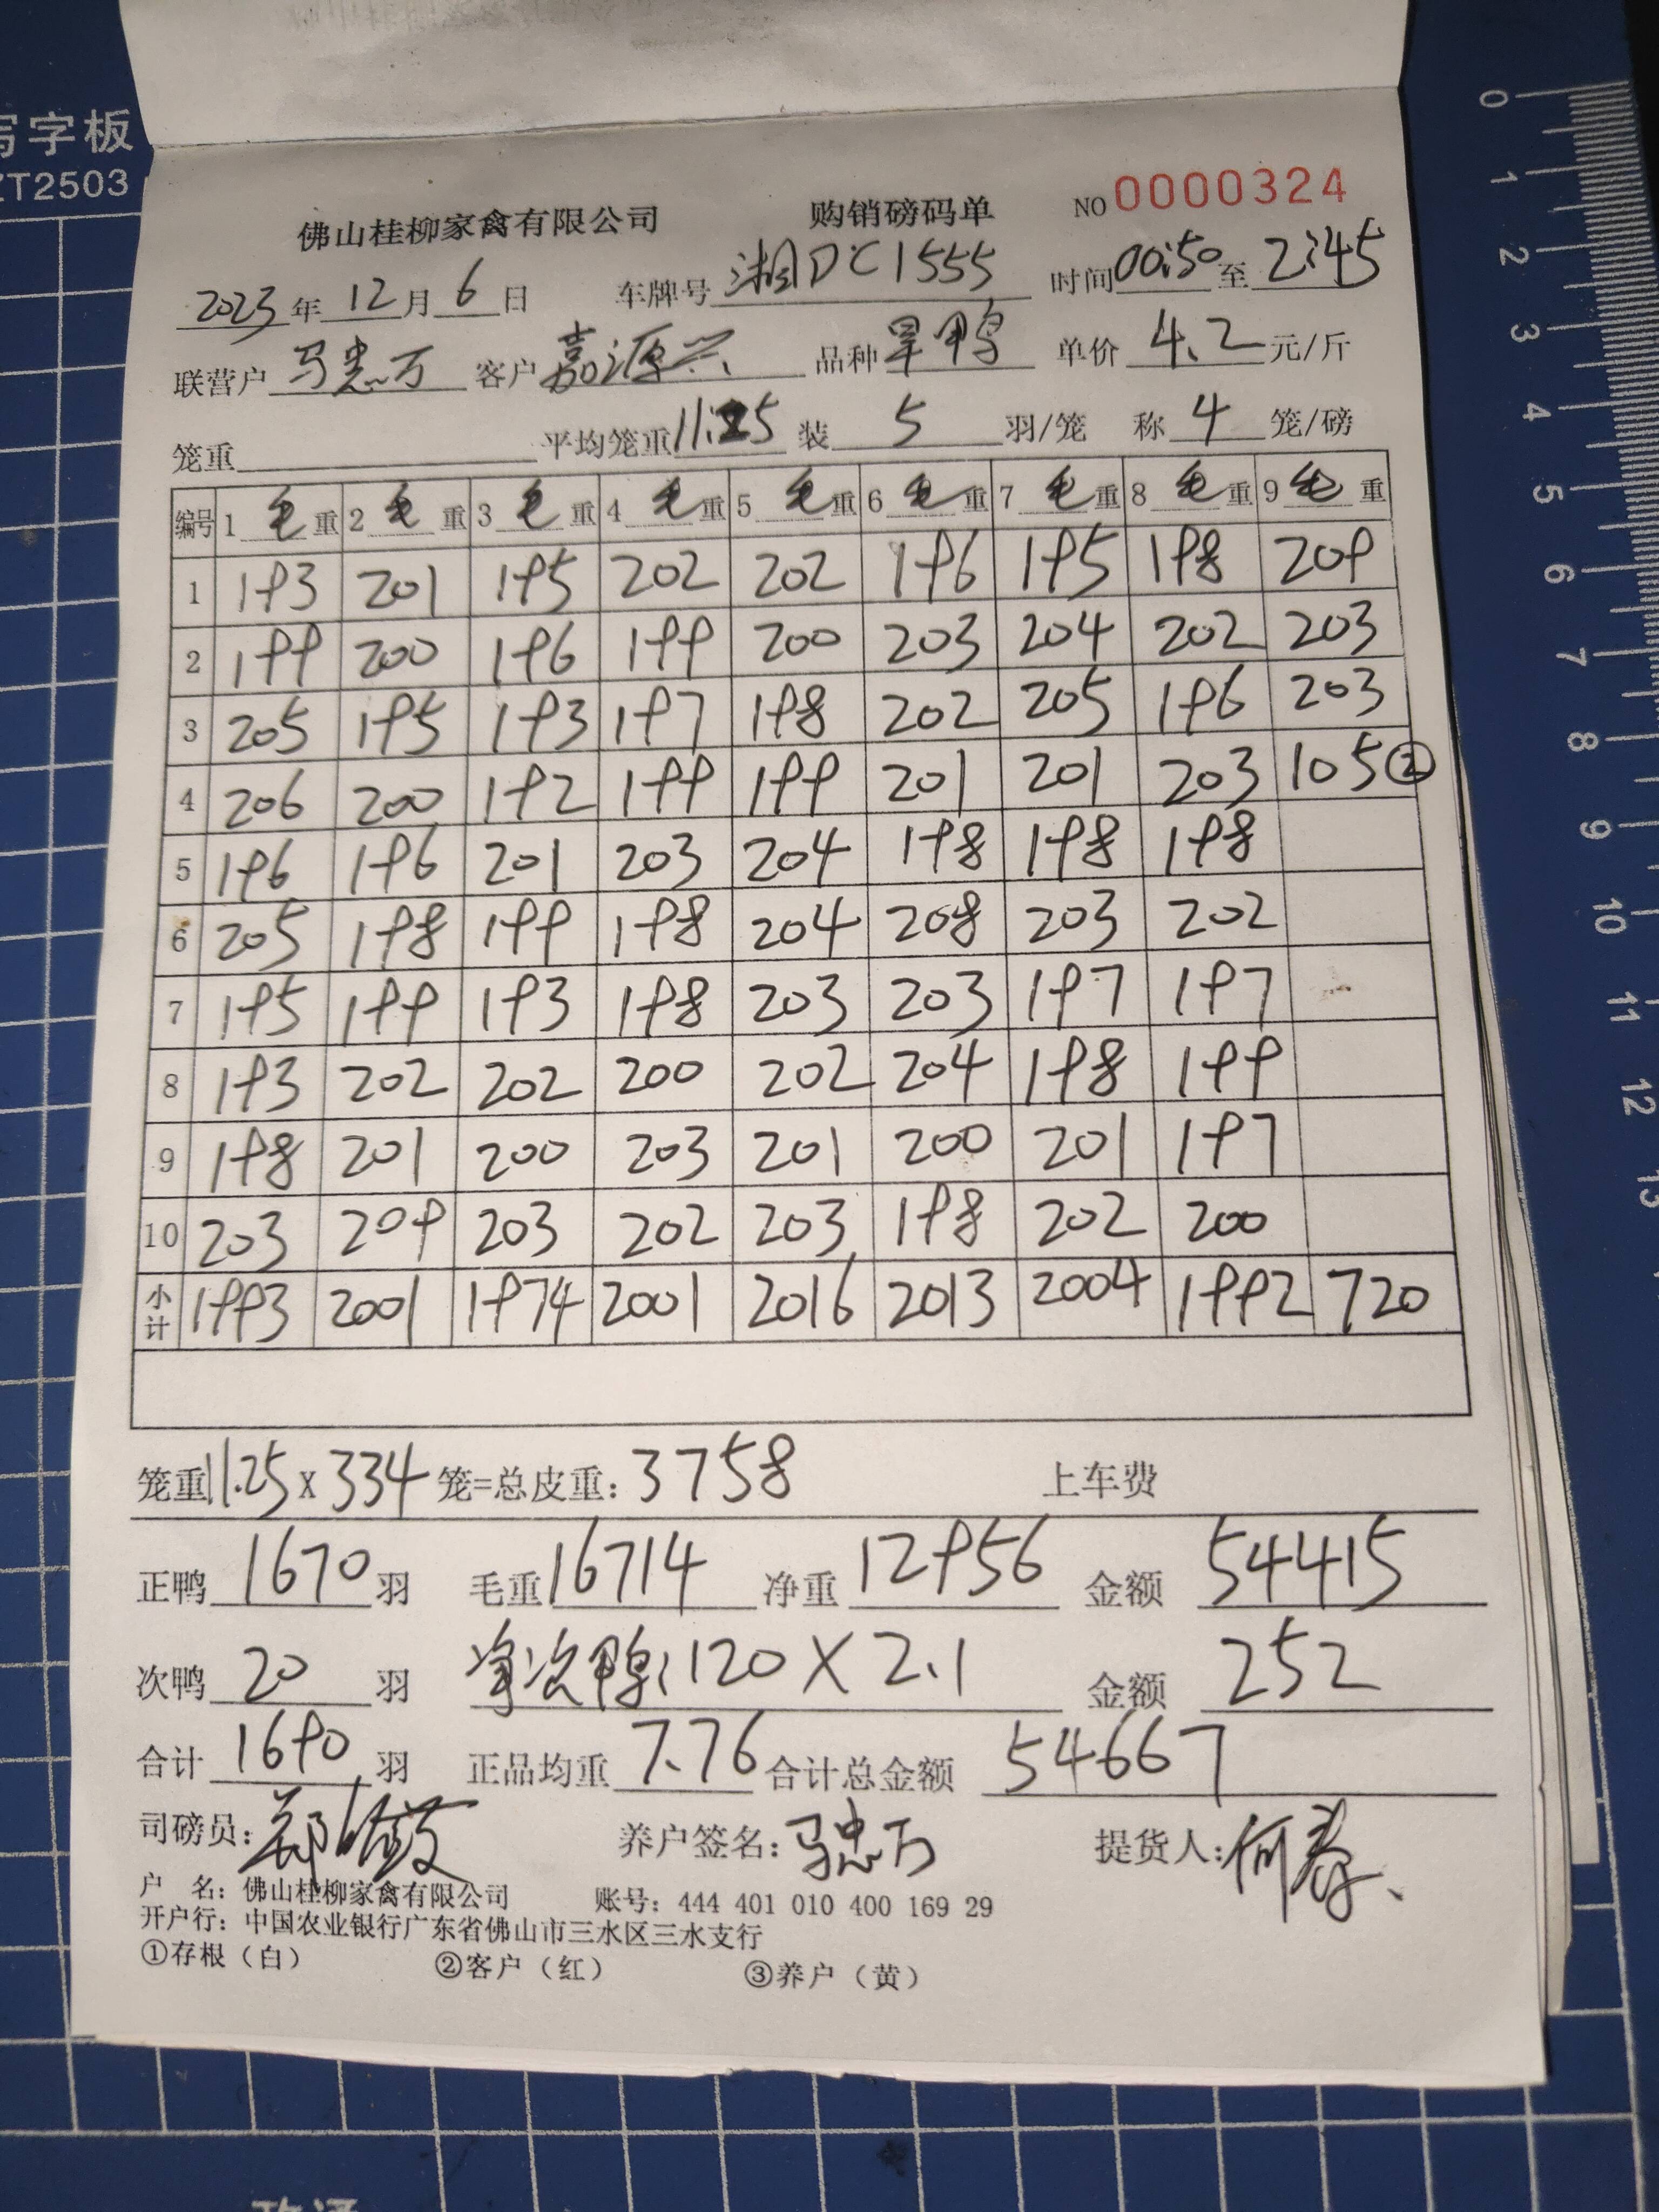 写字板
ZT2503
佛山桂柳家禽有限公司 购销磅码单 NO 0000324
2023年12月6日 车牌号 湘DC1555 时间 00:50 至 2:45
联营户 马忠万 客户 嘉源兴 品种 旱鸭 单价 4.2 元/斤
笼重 平均笼重 11.25 装 5 羽/笼 称 4 笼/磅
编号 1 毛重 2 毛重 3 毛重 4 毛重 5 毛重 6 毛重 7 毛重 8 毛重 9 毛重
1 193 201 195 202 202 196 195 198 209
2 199 200 196 199 200 203 204 202 203
3 205 195 193 197 198 202 205 196 203
4 206 200 192 199 199 201 201 203 105②
5 196 196 201 203 204 198 198 198
6 205 198 199 198 204 208 203 202
7 195 199 193 198 203 203 197 197
8 193 202 202 200 202 204 198 199
9 198 201 200 203 201 200 201 197
10 203 209 203 202 203 198 202 200
小计 1993 2001 1974 2001 2016 2013 2004 1992 720
笼重 11.25 x 334 笼=总皮重: 3758 上车费
正鸭 1670 羽 毛重 16714 净重 12956 金额 54415
次鸭 20 羽 净次鸭: 120 X 2.1 金额 252
合计 1690 羽 正品均重 7.76 合计总金额 54667
司磅员: 郑 养户签名: 马忠万 提货人: 何春
户 名: 佛山桂柳家禽有限公司 账号: 444 401 010 400 169 29
开户行: 中国农业银行广东省佛山市三水区三水支行
①存根（白） ②客户（红） ③养户（黄）
0
1
2
3
4
5
6
7
8
9
10
11
12
13